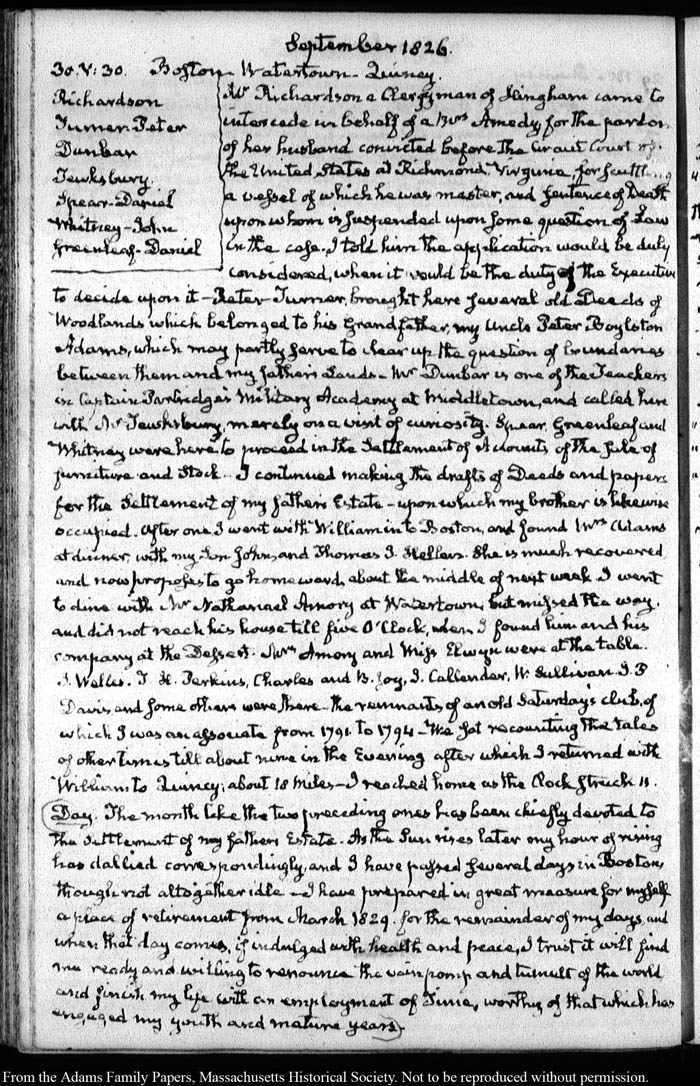 September 1826.
30. V: 30. Boston - Watertown - Quincy.
Richardson
Turner Peter
Dunbar
Tewksbury
Spear - Daniel
Whitney - John
Greenleaf - Daniel
Mr Richardson a Clergyman of Hingham came to
intercede in behalf of a Mrs Amedy, for the pardon
of her husband convicted before the Circuit Court of
the United States at Richmond Virginia, for scuttling
a vessel of which he was master, and sentence of Death
upon whom is suspended upon some question of Law
in the case. I told him the application would be duly
considered, when it would be the duty of the Executive
to decide upon it - Peter Turner, brought here several old Deeds of
Woodlands which belonged to his Grandfather, my Uncle Peter Boylston
Adams, which may partly serve to clear up the question of boundaries
between them and my father's Lands - Mr Dunbar is one of the Teachers
in Captain Partridge's Military Academy at Middletown, and called here
with Mr Tewksbury, merely on a visit of curiosity. Spear, Greenleaf and
Whitney were here to proceed in the Settlement of Accounts of the sale of
furniture and Stock - I continued making the drafts of Deeds and papers
for the Settlement of my father's Estate - upon which my brother is likewise
occupied. After one I went with William into Boston, and found Mrs Adams
at dinner, with my Son John, and Thomas J. Hellen. She is much recovered
and now proposes to go homeward, about the middle of next week. I went
to dine with Mr Nathaniel Amory at Watertown, but missed the way,
and did not reach his house till five O'Clock, when I found him and his
company at the Dessert. Mrs Amory and Miss Elwyn were at the table.
J. Welles. T. H. Perkins, Charles and B. Joy, J. Callender, W. Sullivan J. P
Davis, and some others were there - the remnants of an old Saturday's club, of
which I was an associate from 1791 to 1794 - We sat recounting the tales
of other times till about nine in the Evening after which I returned with
William to Quincy; about 18 miles - I reached home as the Clock struck 11.
Day. The month like the two preceding ones has been chiefly devoted to
the Settlement of my father's Estate. As the Sun rises later my hour of rising
has dallied correspondingly, and I have passed several days in Boston,
though not altogether idle - I have prepared in great measure for myself
a place of retirement from March 1829. for the remainder of my days, and
when that day comes, if indulged with health and peace, I trust it will find
me ready and willing to renounce the vain pomp and tumult of the world
and finish my life with an employment of Time, worthy of that which has
engaged my youth and mature years.
From the Adams Family Papers, Massachusetts Historical Society. Not to be reproduced without permission.